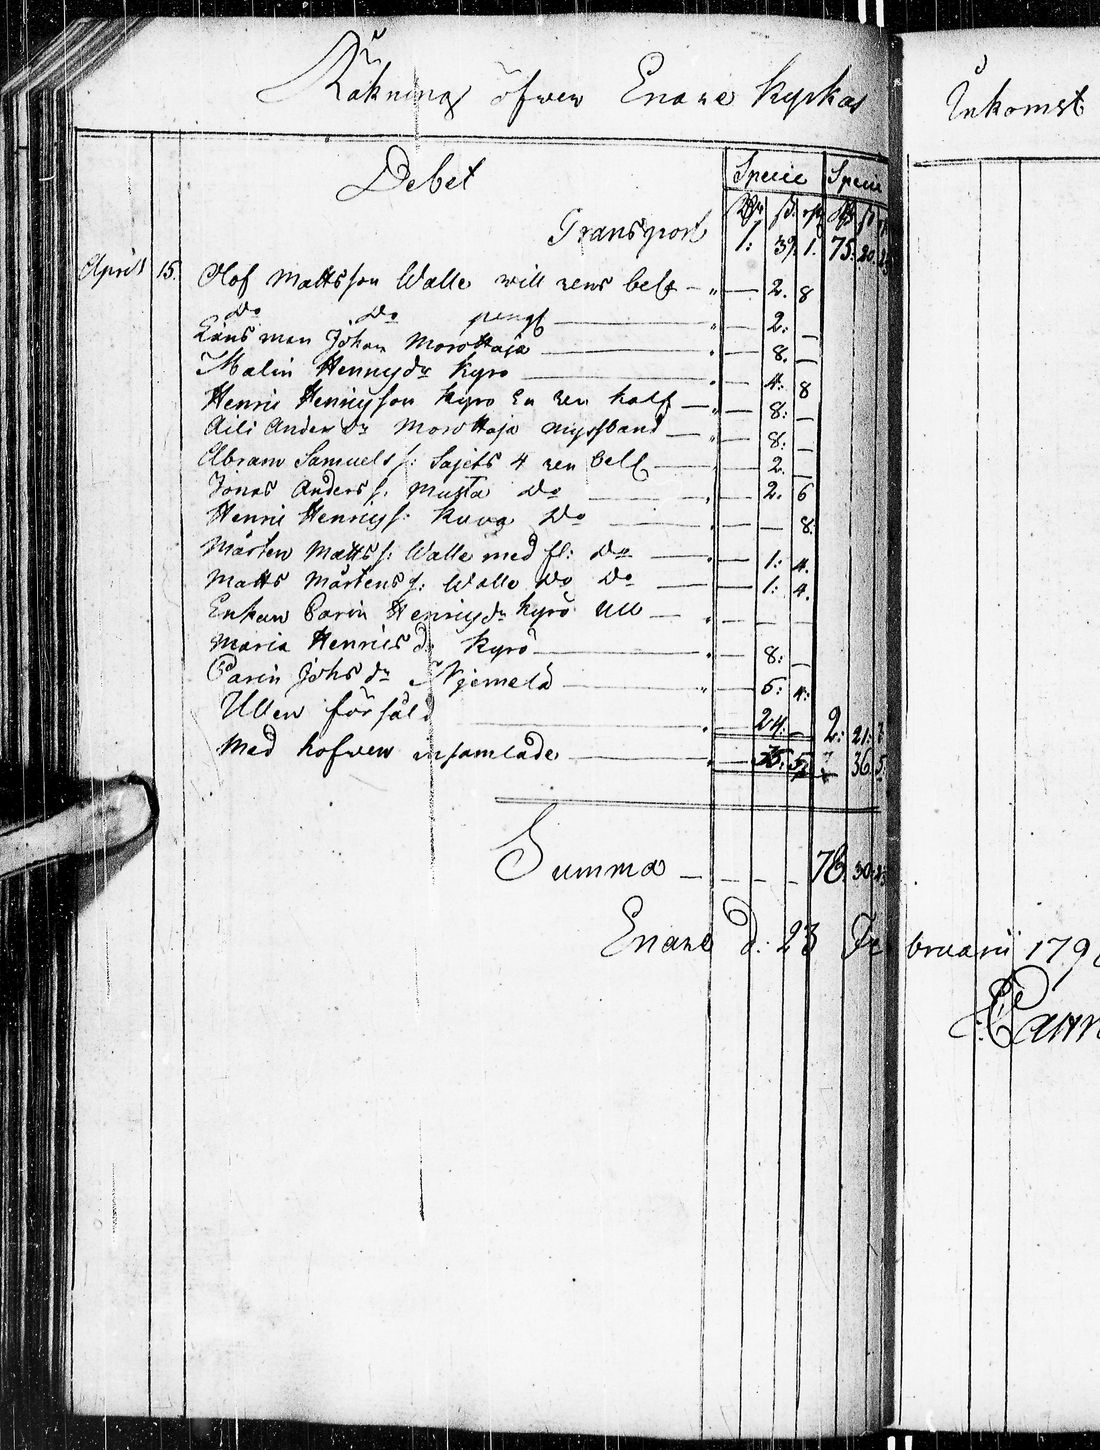 Räkning öfwer Enare Kyrkas Inkomst
Debet Specie Specie
Transport 1: 39. 1. 75. 20.
April 15. Olof Mattsson Walle will rens belg — " — 2. 8
Do Do pengt — " — 2. —
Länsman Johan Morottaja — " — 8. —
Malin Henrigsdr Kyrö — " — 4. 8
Henric Henrigson Kyrö en ren half — " — 8. —
Aili Andersdr Morottaja — 8. —
Abram Samuels s: Sajets 4 ren belg — 2. —
Jonas Anders s. Musta Do — " — 2. 6
Henric Henrigs s. Kuva Do — " — — 8.
Mårten Matts s: Walle med fl: Do — " — 1: 4.
Matts Mårtens s: Walle Do Do — " — 1: 4.
Enkan Carin Henrigsdr Kyrö Ull — " — — —
Maria Henricsdr Kyrö — " — 8: —
Carin Johsdr Kjemelä — " — 5: 4:
Ullen försåld " 24. — 2: 21:
Med hofwen insamlade — " — 36. 5
Summa — — — — 78. 30.
Enare d. 23 Februarii 179